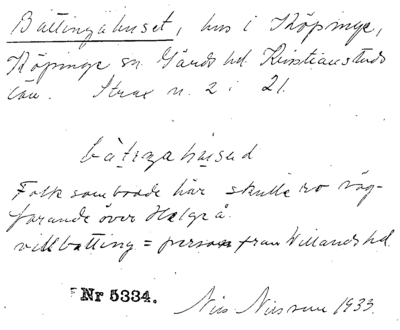 Båttingahuset, hus i Köpinge,
Köpinge sn Gärds hd. Kristianstads
län. Strax n. 2 i 21.
båtıŋahusəd
Folk som bodde här skulle ro väg-
farande över Helgeå.
villbatting = person från Willands hd.
Nr 5334.
Nils Nilsson 1933.